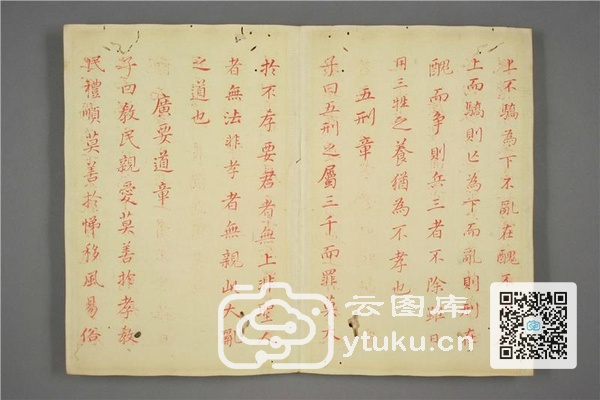 上不驕為下不亂在醜不
上而驕則亡為下而亂則刑在
醜而爭則兵三者不除雖日
用三牲之養猶為不孝也
五刑章
子曰五刑之屬三千而罪莫大
於不孝要君者無上非聖人
者無法非孝者無親此大亂
之道也
廣要道章
子曰教民親愛莫善於孝教
民禮順莫善於悌移風易俗
云图库
ytuku.cn